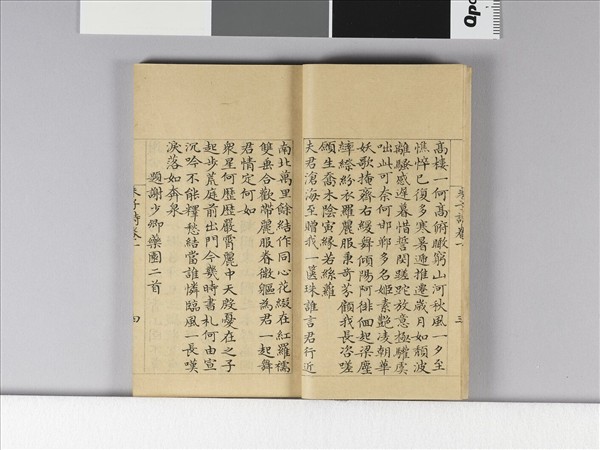 高樓一何高俯瞰窮山河秋風一夕至
憔悴已復多寒暑遞推遷歲月如頹波
離騷感遲暮惜誓閔蹉跎放意極驩虞
咄此可奈何邯鄲多名姬素艷凌朝華
妖歌掩齊右緩舞傾陽阿徘徊起梁塵
繽紛衣羅麗服秉奇芬顧我長咨嗟
願生喬木陰夤緣若絲蘿
夫君滄海至贈我一篋珠誰言君行近
南北萬里餘結作同心花綴在紅羅襦
雙垂合歡帶麗服眷微軀為君一起舞
君情定何如
衆星何歷歷嚴霄麗中天殷憂在之子
起步荒庭前出門今幾時書札何由宣
沉吟不能釋愁結當誰憐臨風一長嘆
淚落如奔泉
題謝少卿藥園二首
朱子詩卷一
三
四